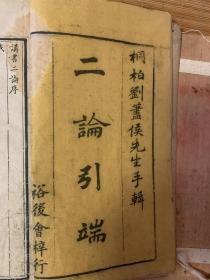 桐柏劉蓋侯先生手輯
二論引端
裕後會梓行
講書二論序